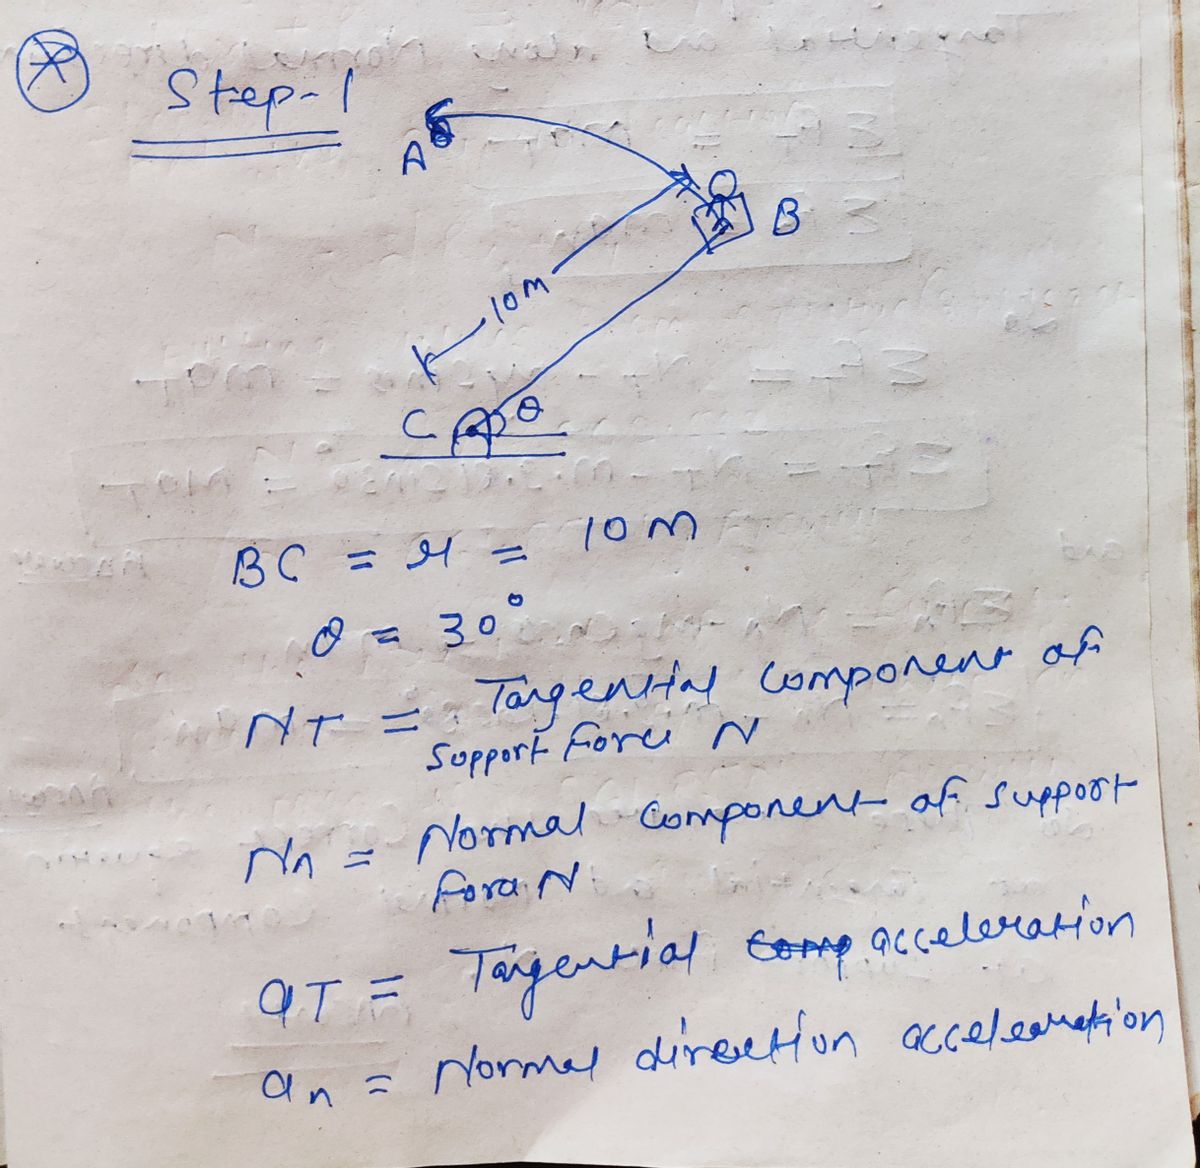 Step-1
A
B
10m
C θ
BC = r = 10m
θ = 30°
NT = Tangential component of
support force N
Nn = Normal component of support
force N
aT = Tangential acceleration
an = Normal direction acceleration